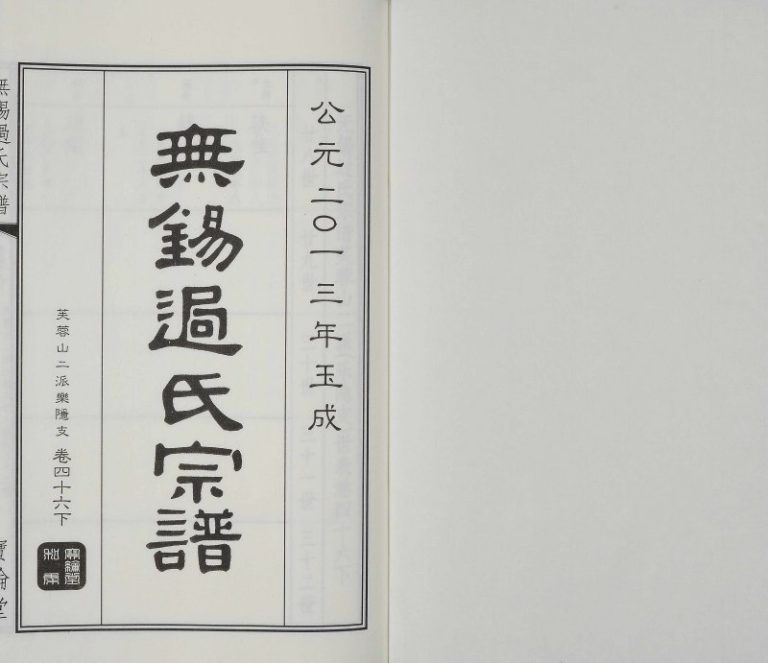 公元二〇一三年玉成
無錫過氏宗譜
芙蓉山二派樂隱支 卷四十六下
無錫過氏宗譜